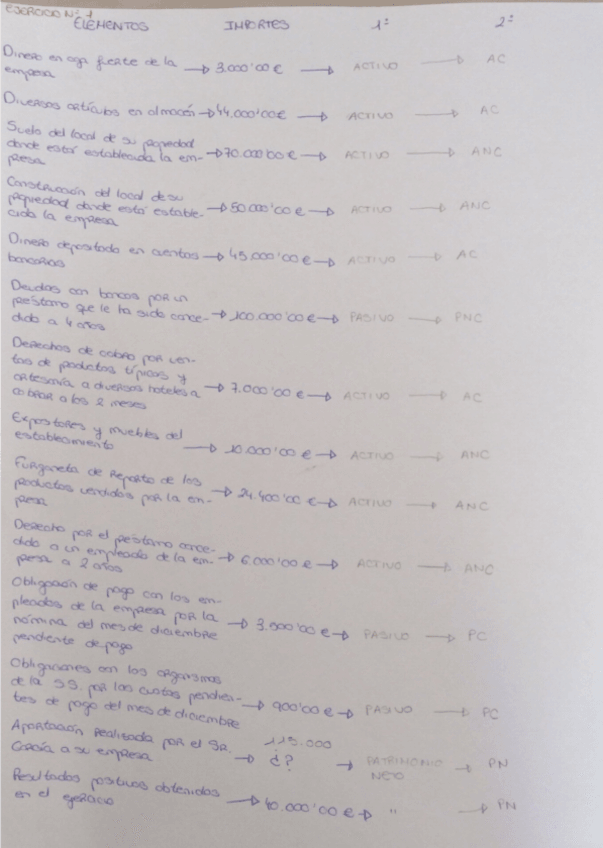 EJERCICIO Nº 1
ELEMENTOS IMPORTES 1º 2º
Dinero en caja fuerte de la
empresa → 3.000'00 € → ACTIVO → AC
Diversos artículos en almacén → 44.000'00 € → ACTIVO → AC
Suelo del local de su propiedad
donde está establecida la em-
presa → 70.000'00 € → ACTIVO → ANC
Construcción del local de su
propiedad donde está estable-
cida la empresa → 50.000'00 € → ACTIVO → ANC
Dinero depositado en cuentas
bancarias → 45.000'00 € → ACTIVO → AC
Deudas con bancos por un
préstamo que le ha sido conce-
dido a 4 años → 100.000'00 € → PASIVO → PNC
Derechos de cobro por ven-
tas de productos típicos y
artesanía a diversos hoteles a
cobrar a los 2 meses → 7.000'00 € → ACTIVO → AC
Expositores y muebles del
establecimiento → 10.000'00 € → ACTIVO → ANC
Furgoneta de reparto de los
productos vendidos por la em-
presa → 24.400'00 € → ACTIVO → ANC
Derecho por el préstamo conce-
dido a un empleado de la em-
presa a 2 años → 6.000'00 € → ACTIVO → ANC
Obligación de pago con los em-
pleados de la empresa por la
nómina del mes de diciembre
pendente de pago → 3.500'00 € → PASIVO → PC
Obligaciones con los organismos
de la S.S. por las cuotas pendien-
tes de pago del mes de diciembre → 900'00 € → PASIVO → PC
Aportación realizada por el Sr. 115.000
García a su empresa → ¿? → PATRIMONIO NETO → PN
Resultados positivos obtenidos
en el ejercicio → 40.000'00 € → " → PN